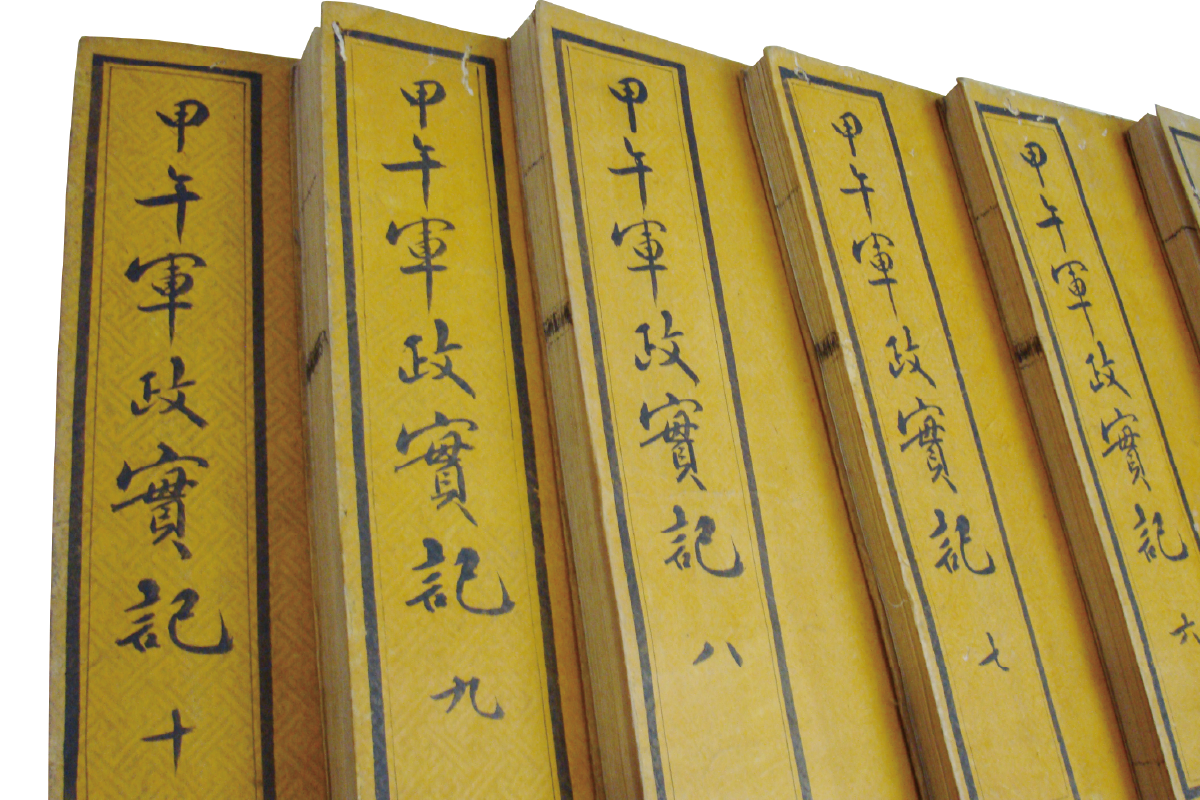 甲午軍政實記 十
甲午軍政實記 九
甲午軍政實記 八
甲午軍政實記 七
甲午軍政實記 六